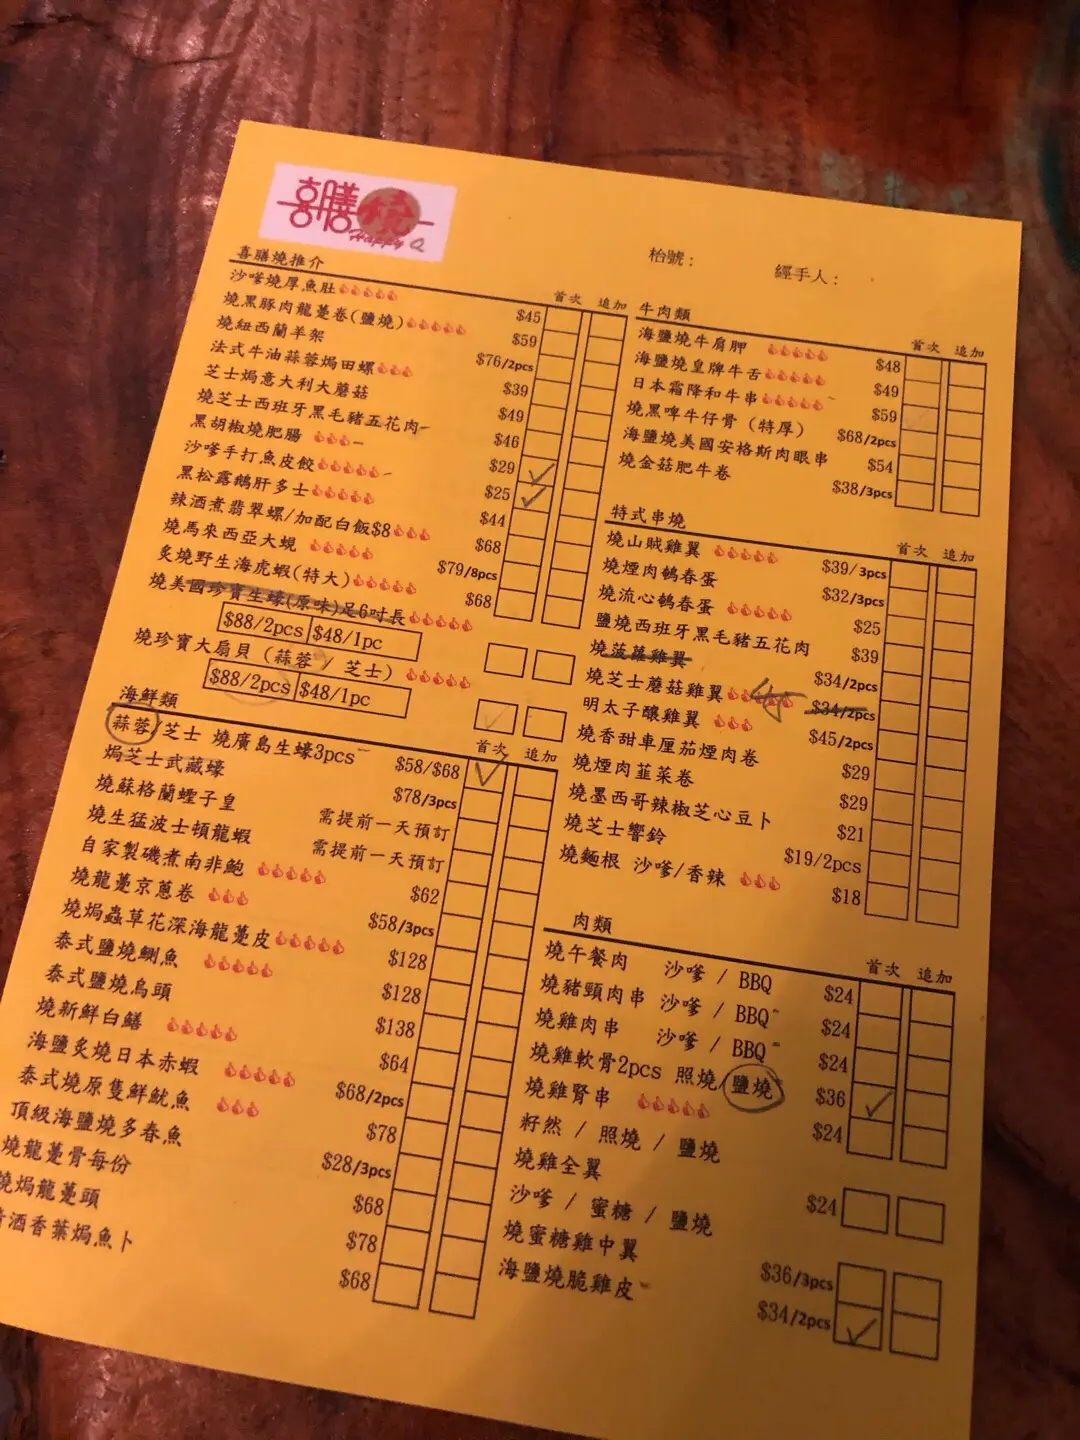 喜膳燒
Happy Q
枱號：
經手人：
喜膳燒推介
首次 追加
沙嗲燒厚魚肚 $45
燒黑豚肉龍躉卷(鹽燒) $59
燒紐西蘭羊架 $76/2pcs
法式牛油蒜蓉焗田螺 $39
芝士焗意大利大蘑菇 $49
燒芝士西班牙黑毛豬五花肉 $46
黑胡椒燒肥腸 $29
沙嗲手打魚皮餃 $25
黑松露鵝肝多士 $44
辣酒煮翡翠螺/加配白飯$8 $68
燒馬來西亞大蜆 $79/8pcs
炙燒野生海虎蝦(特大) $68
燒美國珍寶生蠔(原味)足6吋長
$88/2pcs $48/1pc
燒珍寶大扇貝 (蒜蓉 / 芝士)
$88/2pcs $48/1pc
海鮮類
首次 追加
蒜蓉/芝士 燒廣島生蠔3pcs $58/$68
焗芝士武藏蠔 $78/3pcs
燒蘇格蘭蟶子皇 需提前一天預訂
燒生猛波士頓龍蝦 需提前一天預訂
自家製磯煮南非鮑 $62
燒龍躉京蔥卷 $58/3pcs
燒焗蟲草花深海龍躉皮 $128
泰式鹽燒鰂魚 $128
泰式鹽燒烏頭 $138
燒新鮮白鱔 $64
海鹽炙燒日本赤蝦 $68/2pcs
泰式燒原隻鮮魷魚 $78
頂級海鹽燒多春魚 $28/3pcs
燒龍躉骨每份 $68
燒焗龍躉頭 $78
酒香葉焗魚卜 $68
牛肉類
首次 追加
海鹽燒牛肩胛 $48
海鹽燒皇牌牛舌 $49
日本霜降和牛串 $59
燒黑啤牛仔骨 (特厚) $68/2pcs
海鹽燒美國安格斯肉眼串 $54
燒金菇肥牛卷 $38/3pcs
特式串燒
首次 追加
燒山賊雞翼 $39/3pcs
燒煙肉鵪春蛋 $32/3pcs
燒流心鵪春蛋 $25
鹽燒西班牙黑毛豬五花肉 $39
燒菠蘿雞翼 $34/2pcs
燒芝士蘑菇雞翼 $34/2pcs
明太子釀雞翼 $45/2pcs
燒香甜車厘茄煙肉卷 $29
燒煙肉韮菜卷 $29
燒墨西哥辣椒芝心豆卜 $21
燒芝士響鈴 $19/2pcs
燒麵根 沙嗲/香辣 $18
肉類
首次 追加
燒午餐肉 沙嗲 / BBQ $24
燒豬頸肉串 沙嗲 / BBQ $24
燒雞肉串 沙嗲 / BBQ $24
燒雞軟骨2pcs 照燒/鹽燒 $36
燒雞腎串 $24
籽然 / 照燒 / 鹽燒
燒雞全翼 $24
沙嗲 / 蜜糖 / 鹽燒
燒蜜糖雞中翼 $36/3pcs
海鹽燒脆雞皮 $34/2pcs